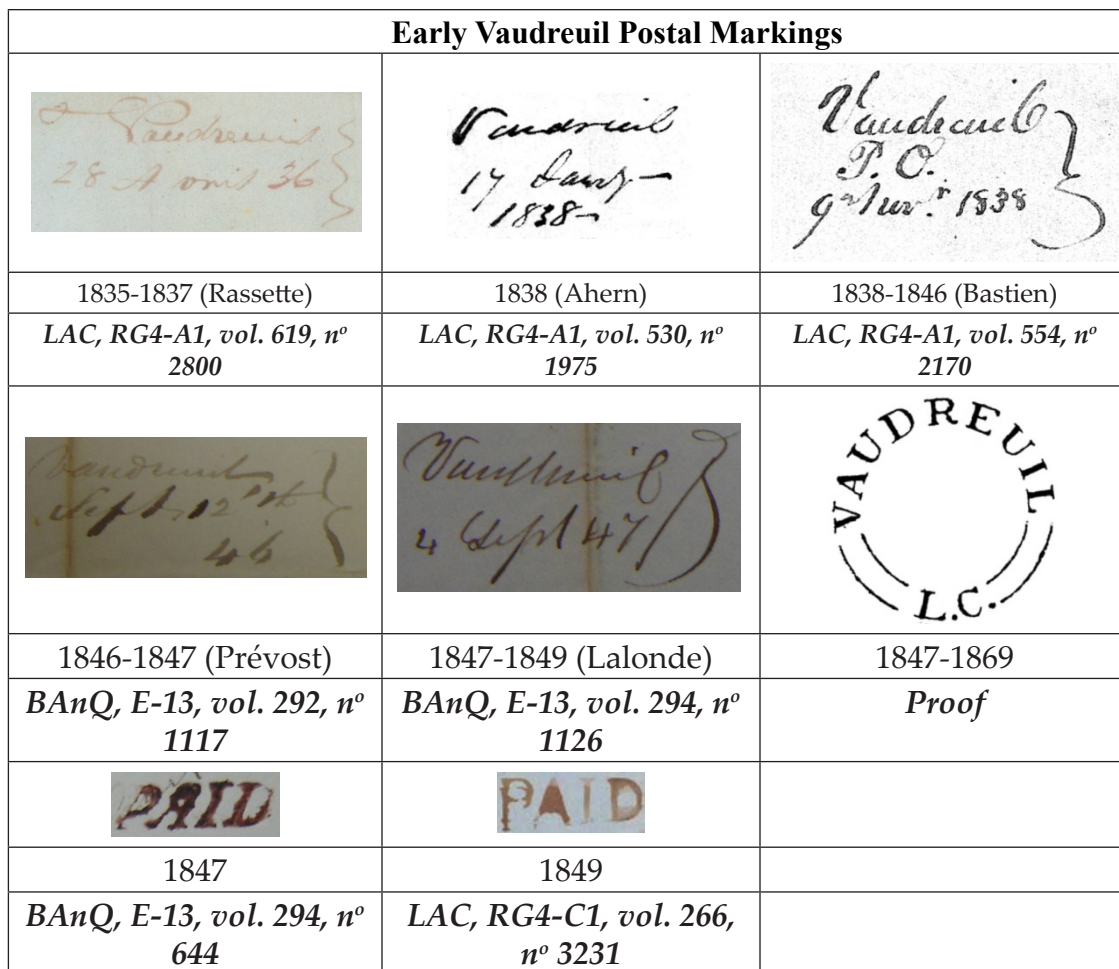 Early Vaudreuil Postal Markings
Vaudreuil
28 Avril 36
Vaudreuil
17 Jany
1838
Vaudreuil
P. O.
9 Nov.r 1838
1835-1837 (Rassette)
1838 (Ahern)
1838-1846 (Bastien)
LAC, RG4-A1, vol. 619, nº
2800
LAC, RG4-A1, vol. 530, nº
1975
LAC, RG4-A1, vol. 554, nº
2170
Vaudreuil
Sept 12th
46
Vaudreuil
4 Sept 47
VAUDREUIL
L.C.
1846-1847 (Prévost)
1847-1849 (Lalonde)
1847-1869
BAnQ, E-13, vol. 292, nº
1117
BAnQ, E-13, vol. 294, nº
1126
Proof
PAID
PAID
1847
1849
BAnQ, E-13, vol. 294, nº
644
LAC, RG4-C1, vol. 266,
nº 3231